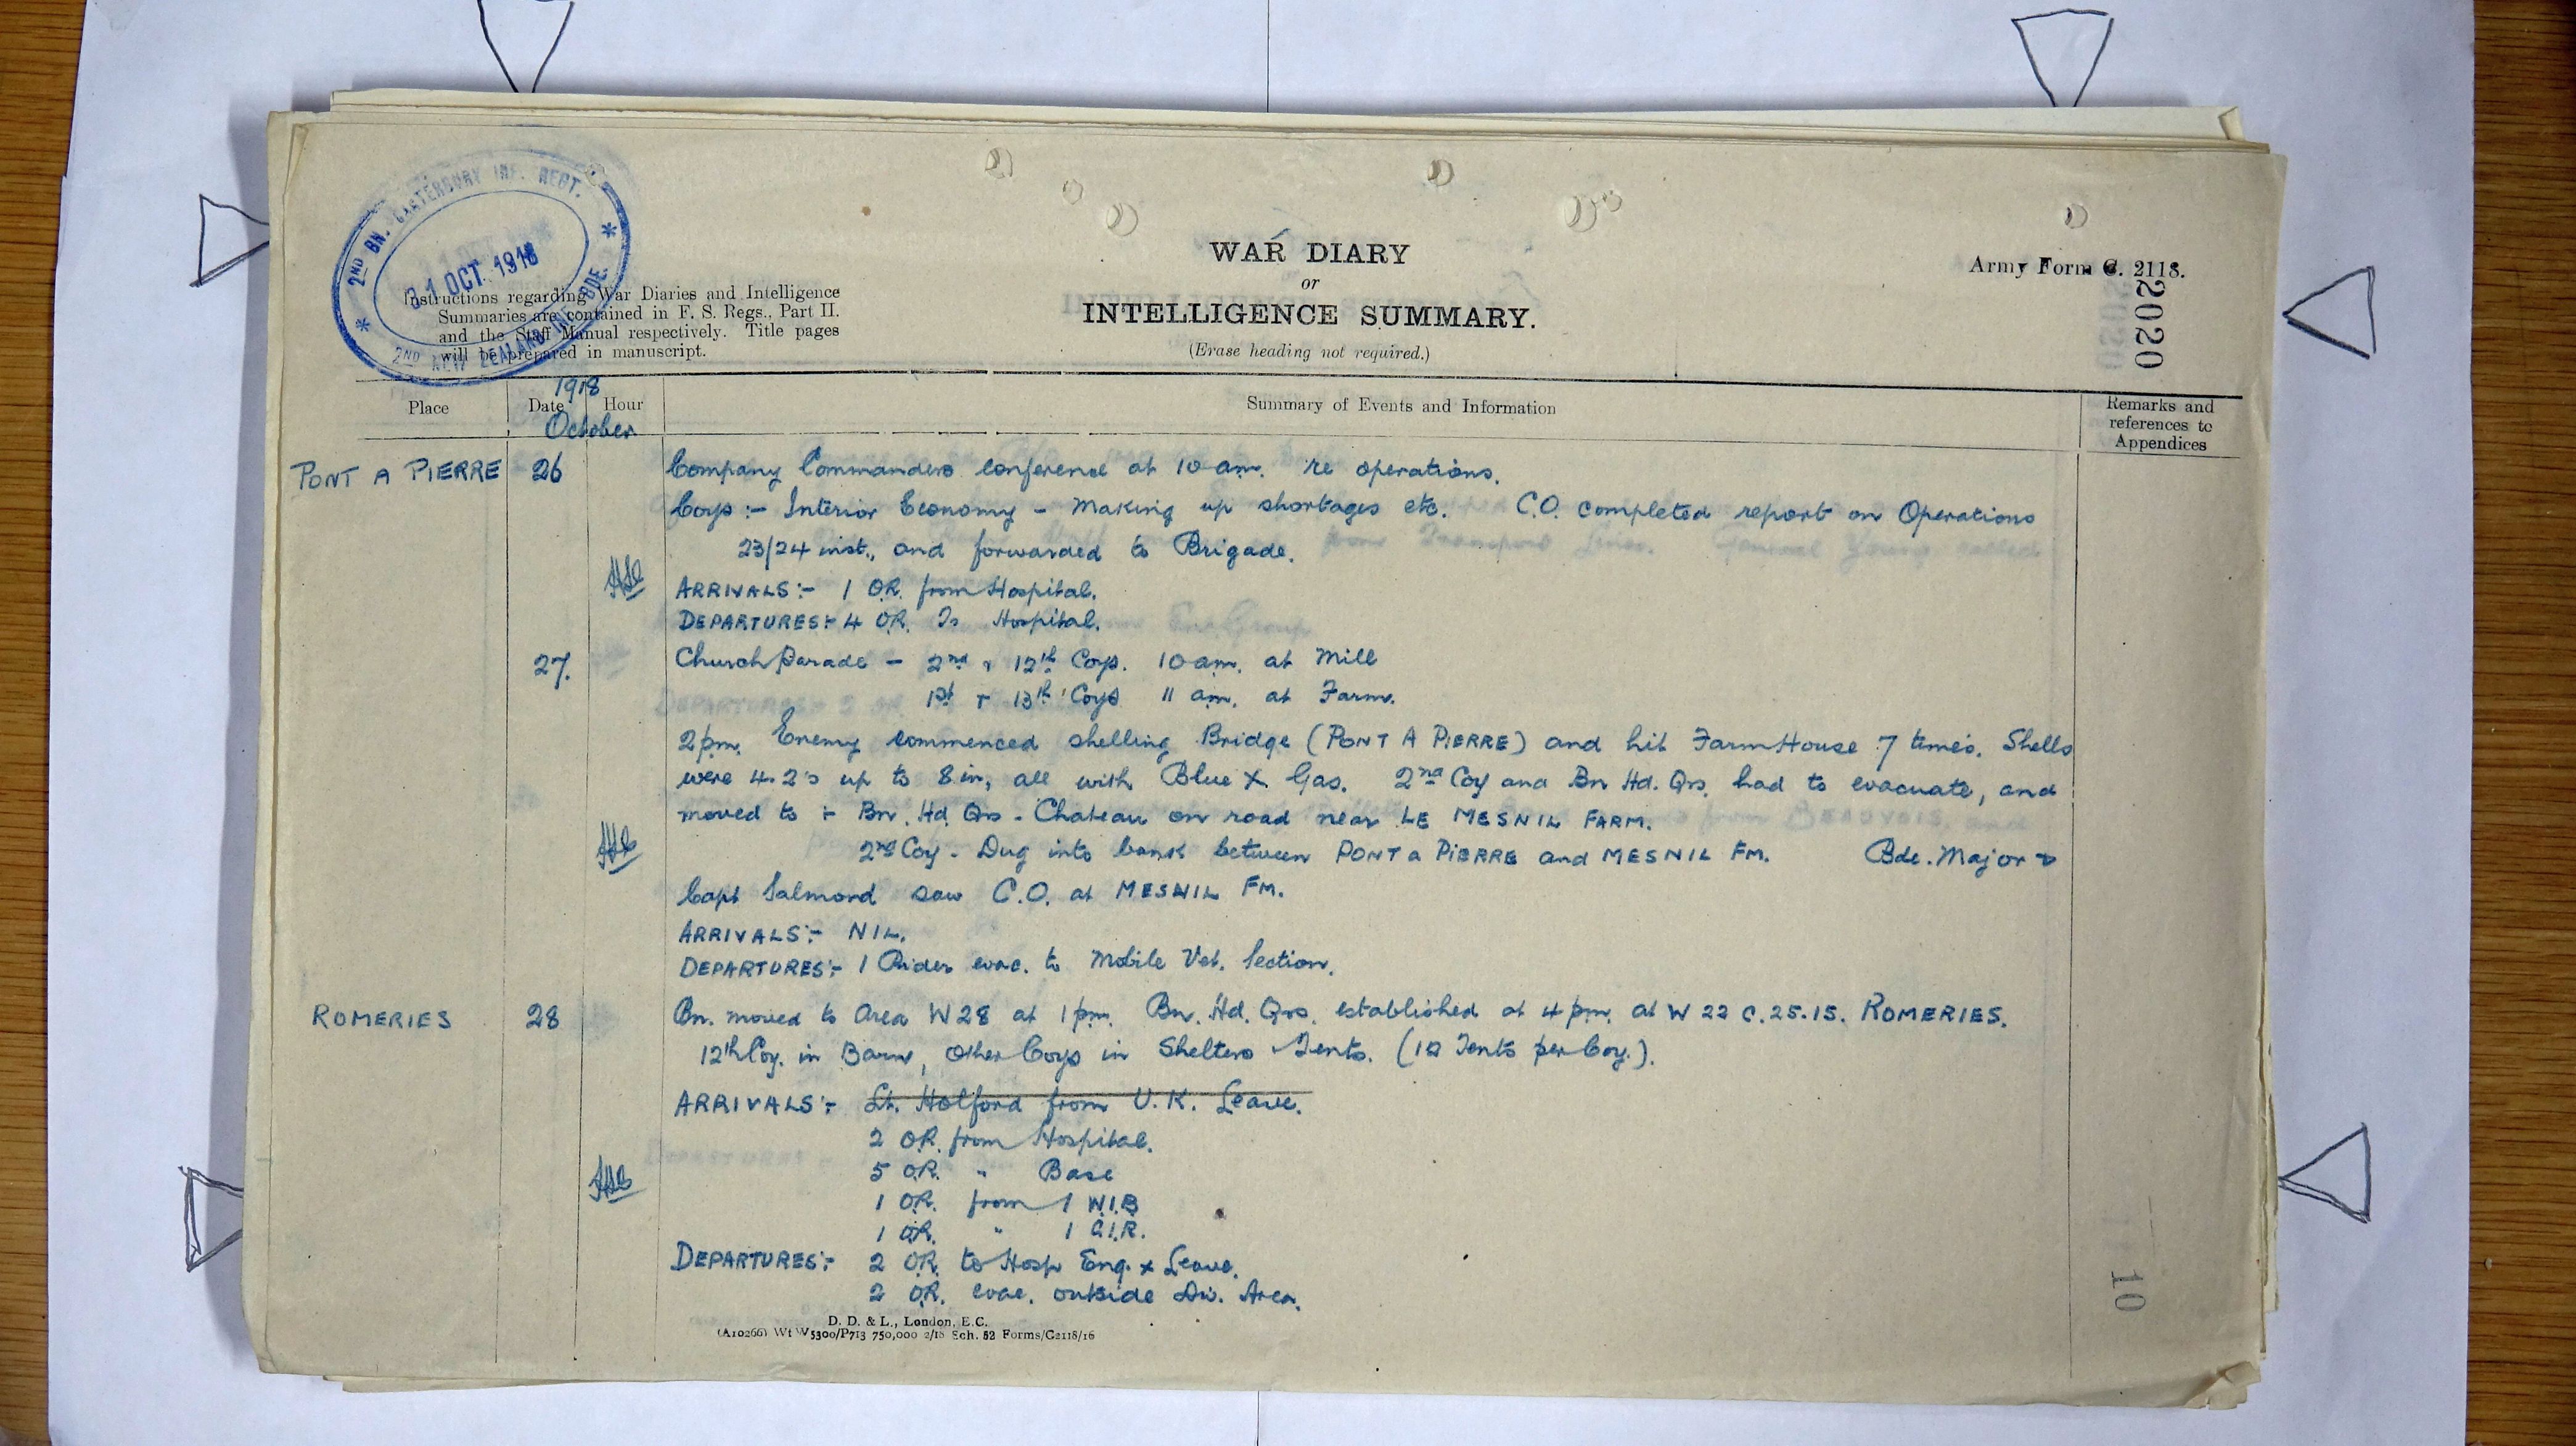 2ND BN. CANTERBURY INF. REGT.
31 OCT. 1918
2ND NEW ZEALAND INF. BDE.
Instructions regarding War Diaries and Intelligence
Summaries are contained in F. S. Regs., Part II.
and the Staff Manual respectively. Title pages
will be prepared in manuscript.
WAR DIARY
or
INTELLIGENCE SUMMARY.
(Erase heading not required.)
Army Form C. 2118.
2020
1918
Place Date Hour Summary of Events and Information Remarks and
references to
Appendices
October
PONT A PIERRE 26 Company Commanders conference at 10 am. re operations.
Coys :- Interior Economy - Making up shortages etc. C.O. completed report on Operations
23/24 inst., and forwarded to Brigade.
ARRIVALS :- 1 OR. from Hospital.
DEPARTURES :- 4 OR. To Hospital.
27. Church Parade - 2nd & 12th Coys. 10 am. at Mill
1st & 13th Coys 11 am. at Farm.
2 pm. Enemy commenced shelling Bridge (PONT A PIERRE) and hit Farm House 7 times. Shells
were 4.2's up to 8 in, all with Blue X Gas. 2nd Coy and Bn Hd. Qrs. had to evacuate, and
moved to :- Bn. Hd. Qrs - Chateau on road near LE MESNIL FARM.
2nd Coy - Dug into bank between PONT a PIERRE and MESNIL FM. Bde. Major &
Capt Salmond saw C.O. at MESNIL FM.
ARRIVALS :- NIL.
DEPARTURES :- 1 Rider evac. to Mobile Vet. Section.
ROMERIES 28 Bn. moved to Area W28 at 1 pm. Bn. Hd. Qrs. established at 4 pm. at W 22 C.25.15. ROMERIES.
12th Coy. in Barn, other Coys in Shelters & Tents. (10 Tents per Coy.).
ARRIVALS :- Lt. Holford from U.K. Leave.
2 OR. from Hospital.
5 OR. " Base
1 OR. from 1 W.I.B
1 OR. " 1 C.I.R.
DEPARTURES :- 2 OR. to Hosp Eng. x Leave.
2 OR. evac. outside Div. Area.
10
D. D. & L., London, E.C.
(A10266) Wt W5300/P713 750,000 2/18 Sch. 52 Forms/C2118/16